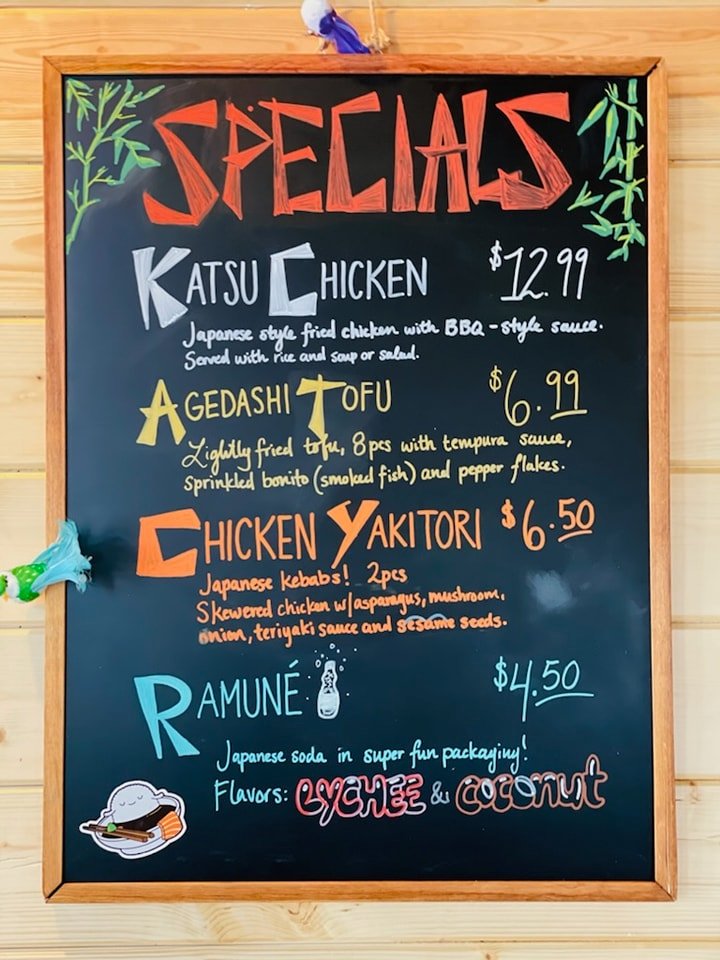 SPECIALS
KATSU CHICKEN $12.99
Japanese style fried chicken with BBQ-style sauce.
Served with rice and soup or salad.
AGEDASHI TOFU $6.99
Lightly fried tofu, 8pcs with tempura sauce,
sprinkled bonito (smoked fish) and pepper flakes.
CHICKEN YAKITORI $6.50
Japanese kebabs! 2pcs
Skewered chicken w/asparagus, mushroom,
onion, teriyaki sauce and sesame seeds.
RAMUNÉ $4.50
Japanese soda in super fun packaging!
Flavors: LYCHEE & coconut